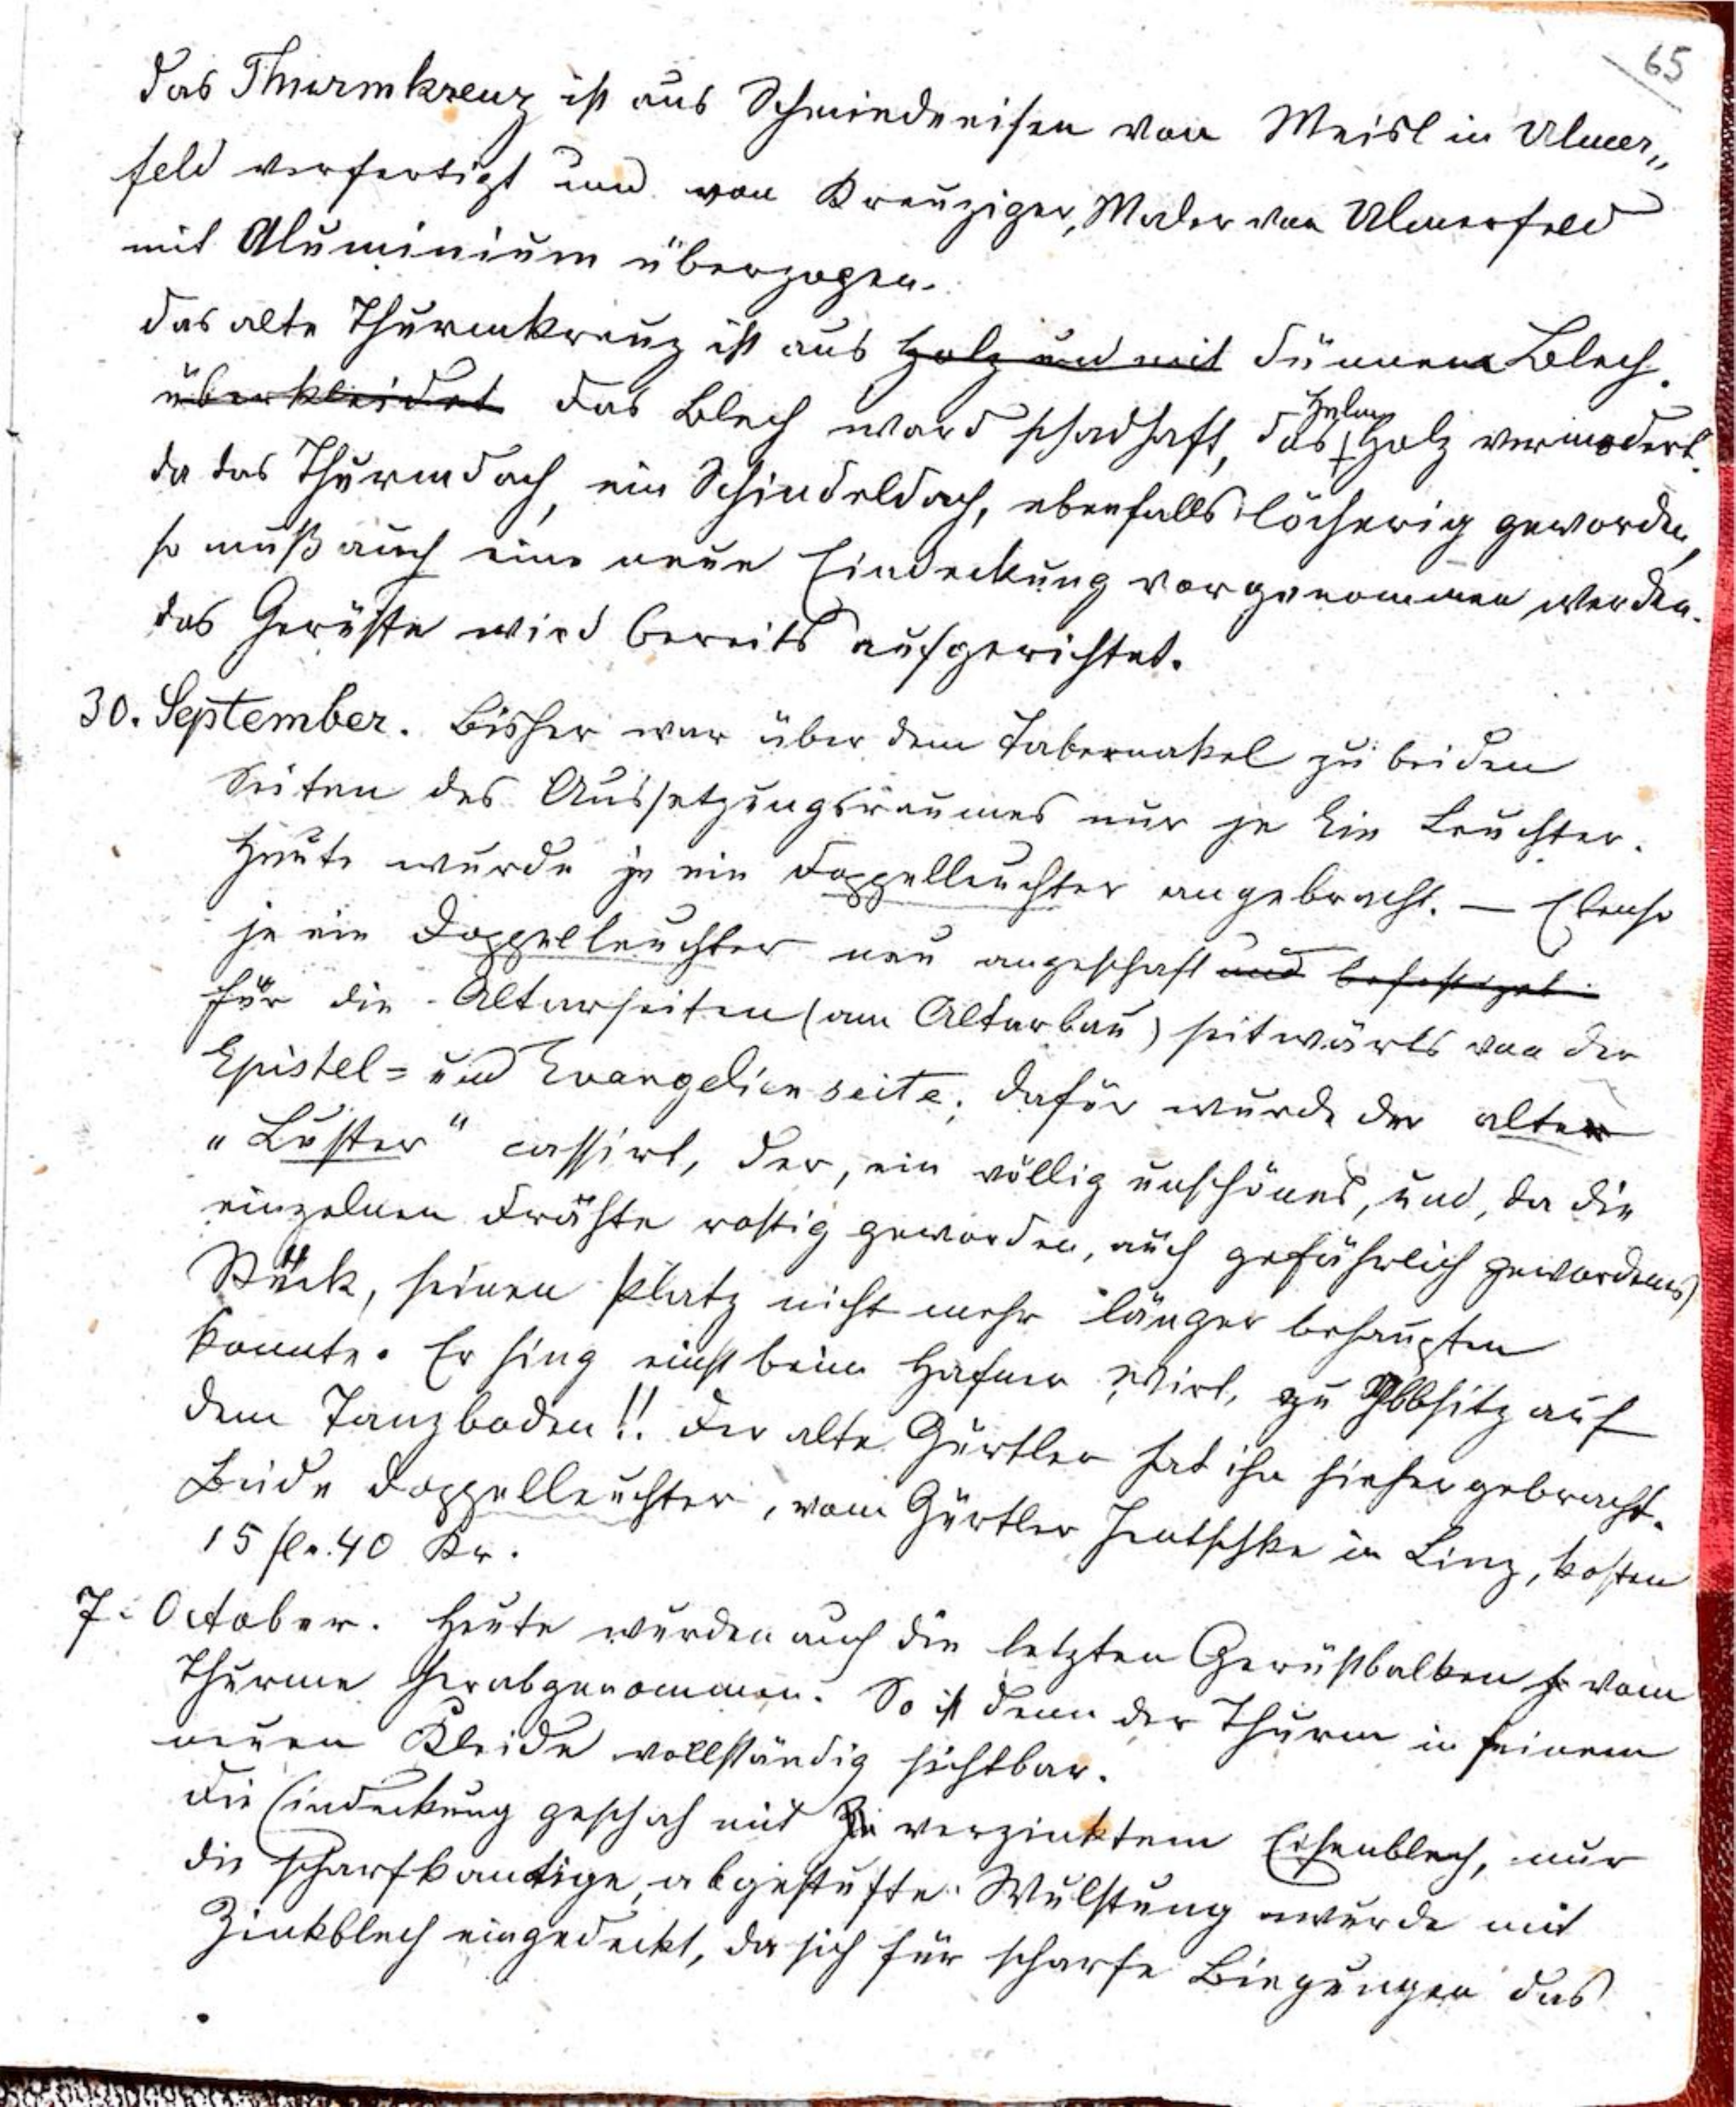 65
Das Thurmkreuz ist aus Schmiedeeisen von Meisl in Ulmer„
feld verfertigt und von Kreuziger, Maler von Ulmerfeld
mit Aluminium überzogen.
Das alte Thurmkreuz ist aus Holz und mit dünnem Blech.
überkleidet Das Blech ward schadhaft, das Helm Holz vermodert.
Da das Thurmdach, ein Schindeldach, ebenfalls löcherig geworden,
so muß auch eine neue Eindeckung vorgenommen werden.
Das Gerüste wird bereits aufgerichtet.
30. September. Bisher war über dem Tabernakel zu beiden
Seiten des Aussetzungsraumes nur je Ein Leuchter.
Heute wurde je ein Doppelleuchter angebracht. — Ebenso
je ein Doppelleuchter neu angeschaft und befestiget
für die Altarseiten (am Altarbau) seitwärts von der
Epistel= und Evangelienseite; dafür wurde der alte
"Luster" cassirt, der, ein völlig unschönes, und, da die
einzelnen Drähte rostig geworden, auch gefährlich gewordenes
Stück, seinen Platz nicht mehr länger behaupten
konnte. Er hing einst beim Hafner Wirt, zu Ybbsitz auf
dem Tanzboden!! Der alte Gürtler hat ihn hieher gebracht.
Beide Doppelleuchter, vom Gürtler Jentschke in Linz, kosten
15 fl. 40 Kr.
7. October. Heute wurden auch die letzten Gerüstbalken vom
Thurme herabgenommen. So ist denn der Thurm in seinem
neuen Kleide vollständig sichtbar.
Die Eindeckung geschah mit verzinktem Eisenblech, nur
die scharfkantige, abgestufte Wulstung wurde mit
Zinkblech eingedeckt, da sich für scharfe Biegungen das